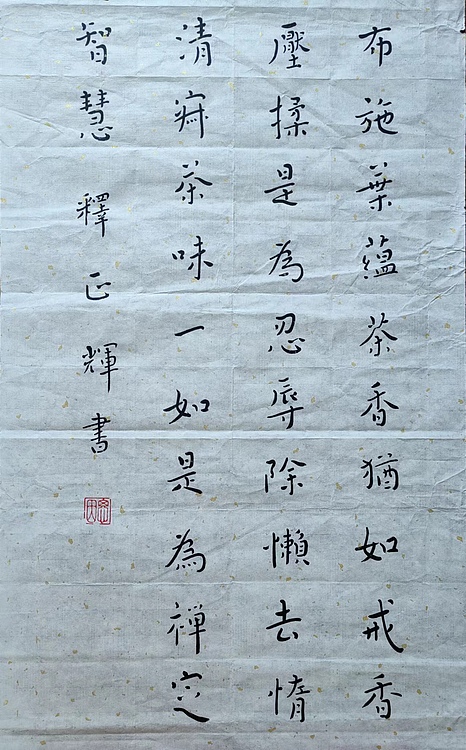 布施葉蘊茶香猶如戒香
壓揉是為忍辱除懶去惰
清寂茶味一如是為禪定
智慧 釋正輝書